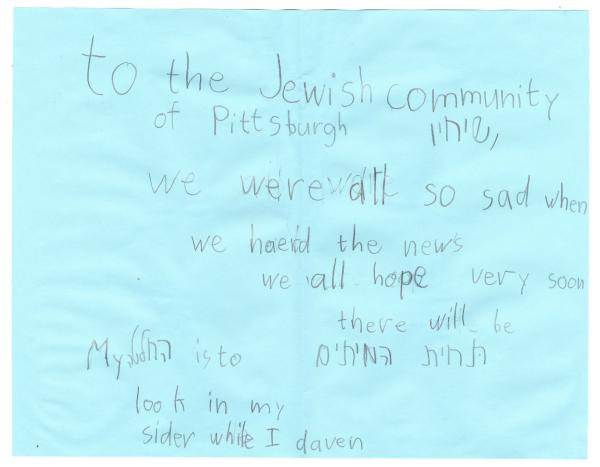 to the Jewish community
of Pittsburgh שיחיו,
we were all so sad when
we haerd the news
we all hope very soon
there will be
תחית המיתים
My החלטה is to
look in my
sider while I daven